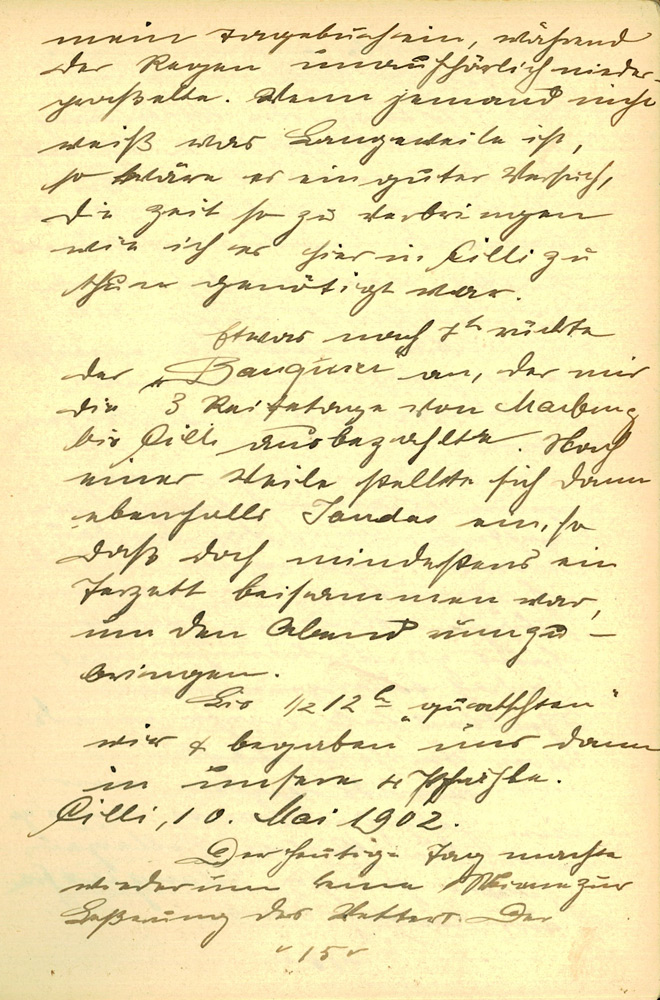 mein Tagebuch ein, während
der Regen unaufhörlich nieder-
praßelte. Wenn jemand nicht
weiß was Langeweile ist,
so wäre es ein guter Versuch,
die Zeit so zu verbringen
wie ich es hier in Cilli zu
thun genötigt war.
Etwas nach 7h rückte
der „Banquier" an, der mir
die 3 Reisetage von Marburg
bis Cilli ausbezahlte. Nach
einer Weile stellte sich dann
ebenfalls Jandas ein, so
daß doch mindestens ein
Terzett beisammen war,
um den Abend umzu-
bringen.
Bis 1/2 12h „quatschten"
wir & begaben uns dann
in unsere 4 Pfähle.
Cilli, 10. Mai 1902.
Der heutige Tag machte
wiederum keine Miene zur
Beßerung des Wetters. Der
15